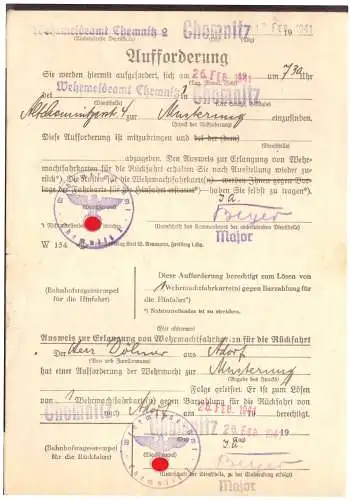 Wehrmeldeamt Chemnitz 2 Chemnitz FEB. 1941
(Ausstellende Dienststelle) 19
Aufforderung
Sie werden hiermit aufgefordert, sich am 26. FEB. 1941 um 7 30 Uhr
bei Wehrmeldeamt Chemnitz in Chemnitz
(Dienststelle)
zur Musterung einzufinden.
(Zweck der Aufforderung)
Diese Aufforderung ist mitzubringen und bei der (dem)
abzugeben. Den Ausweis zur Erlangung von Wehr-
machtfahrkarten für die Rückfahrt erhalten Sie nach Ausstellung wieder zu-
rück*). Die Kosten für die Wehrmachtfahrkarte(n) werden Ihnen gegen Vor-
lage der Fahrkarte für die Hinfahrt erstattet*) haben Sie selbst zu tragen*).
J. A.
Beyer
Major
W 154
Diese Aufforderung berechtigt zum Lösen von
(Bahnhofstagesstempel
für die Hinfahrt)
1 Wehrmachtfahrkarte(n) gegen Barzahlung für die
Hinfahrt*)
*) Nichtzutreffendes ist zu streichen.
Ausweis zur Erlangung von Wehrmachtfahrkarten für die Rückfahrt
Der Herr Döhner aus Adorf
(Vor- und Familienname)
hat einer Aufforderung der Wehrmacht zur Musterung
(Angabe des Zwecks)
Folge geleistet. Er ist zum Lösen
von 1 Wehrmachtfahrkarte(n) gegen Barzahlung für die Rückfahrt von
Chemnitz nach Adorf am 26. FEB. 1941 berechtigt.
Chemnitz 26. FEB. 1941 19
(Bahnhofstagesstempel
für die Rückfahrt)
(Dienststempel)
J. A.
Beyer
Major